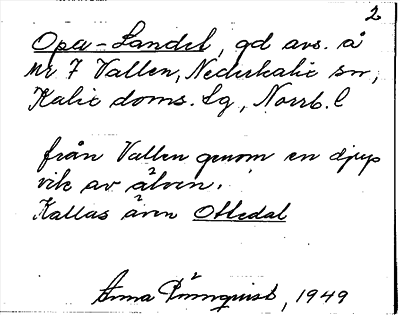 2
Opa-Landet, gd avs. å
nr 7 Vallen, Nederkalix sn,
Kalix doms. Lg, Norrb. l
från Vallen genom en djup
vik av älven.
Kallas även Ottedal
Anna Rönnquist, 1949